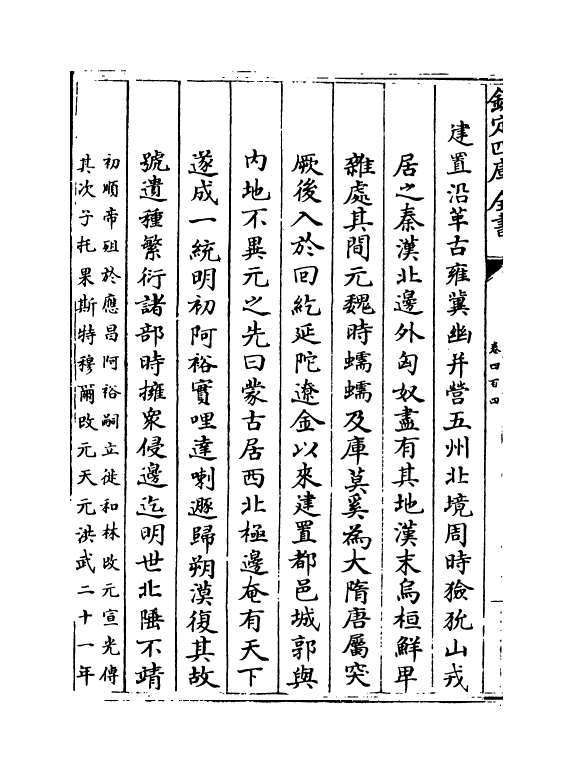 欽定四庫全書
卷四百四
建置沿革古雍冀幽并營五州北境周時獫狁山戎
居之秦漢北邊外匈奴盡有其地漢末烏桓鮮卑
雜處其間元魏時蠕蠕及庫莫奚為大隋唐屬突
厥後入於回紇延陀遼金以來建置都邑城郭與
內地不異元之先曰蒙古居西北極邊奄有天下
遂成一統明初阿裕實哩達喇遯歸朔漠復其故
號遺種繁衍諸部時擁衆侵邊迄明世北陲不靖
初順帝殂於應昌阿裕嗣立徙和林改元宣光傳
其次子托果斯特穆爾改元天元洪武二十一年